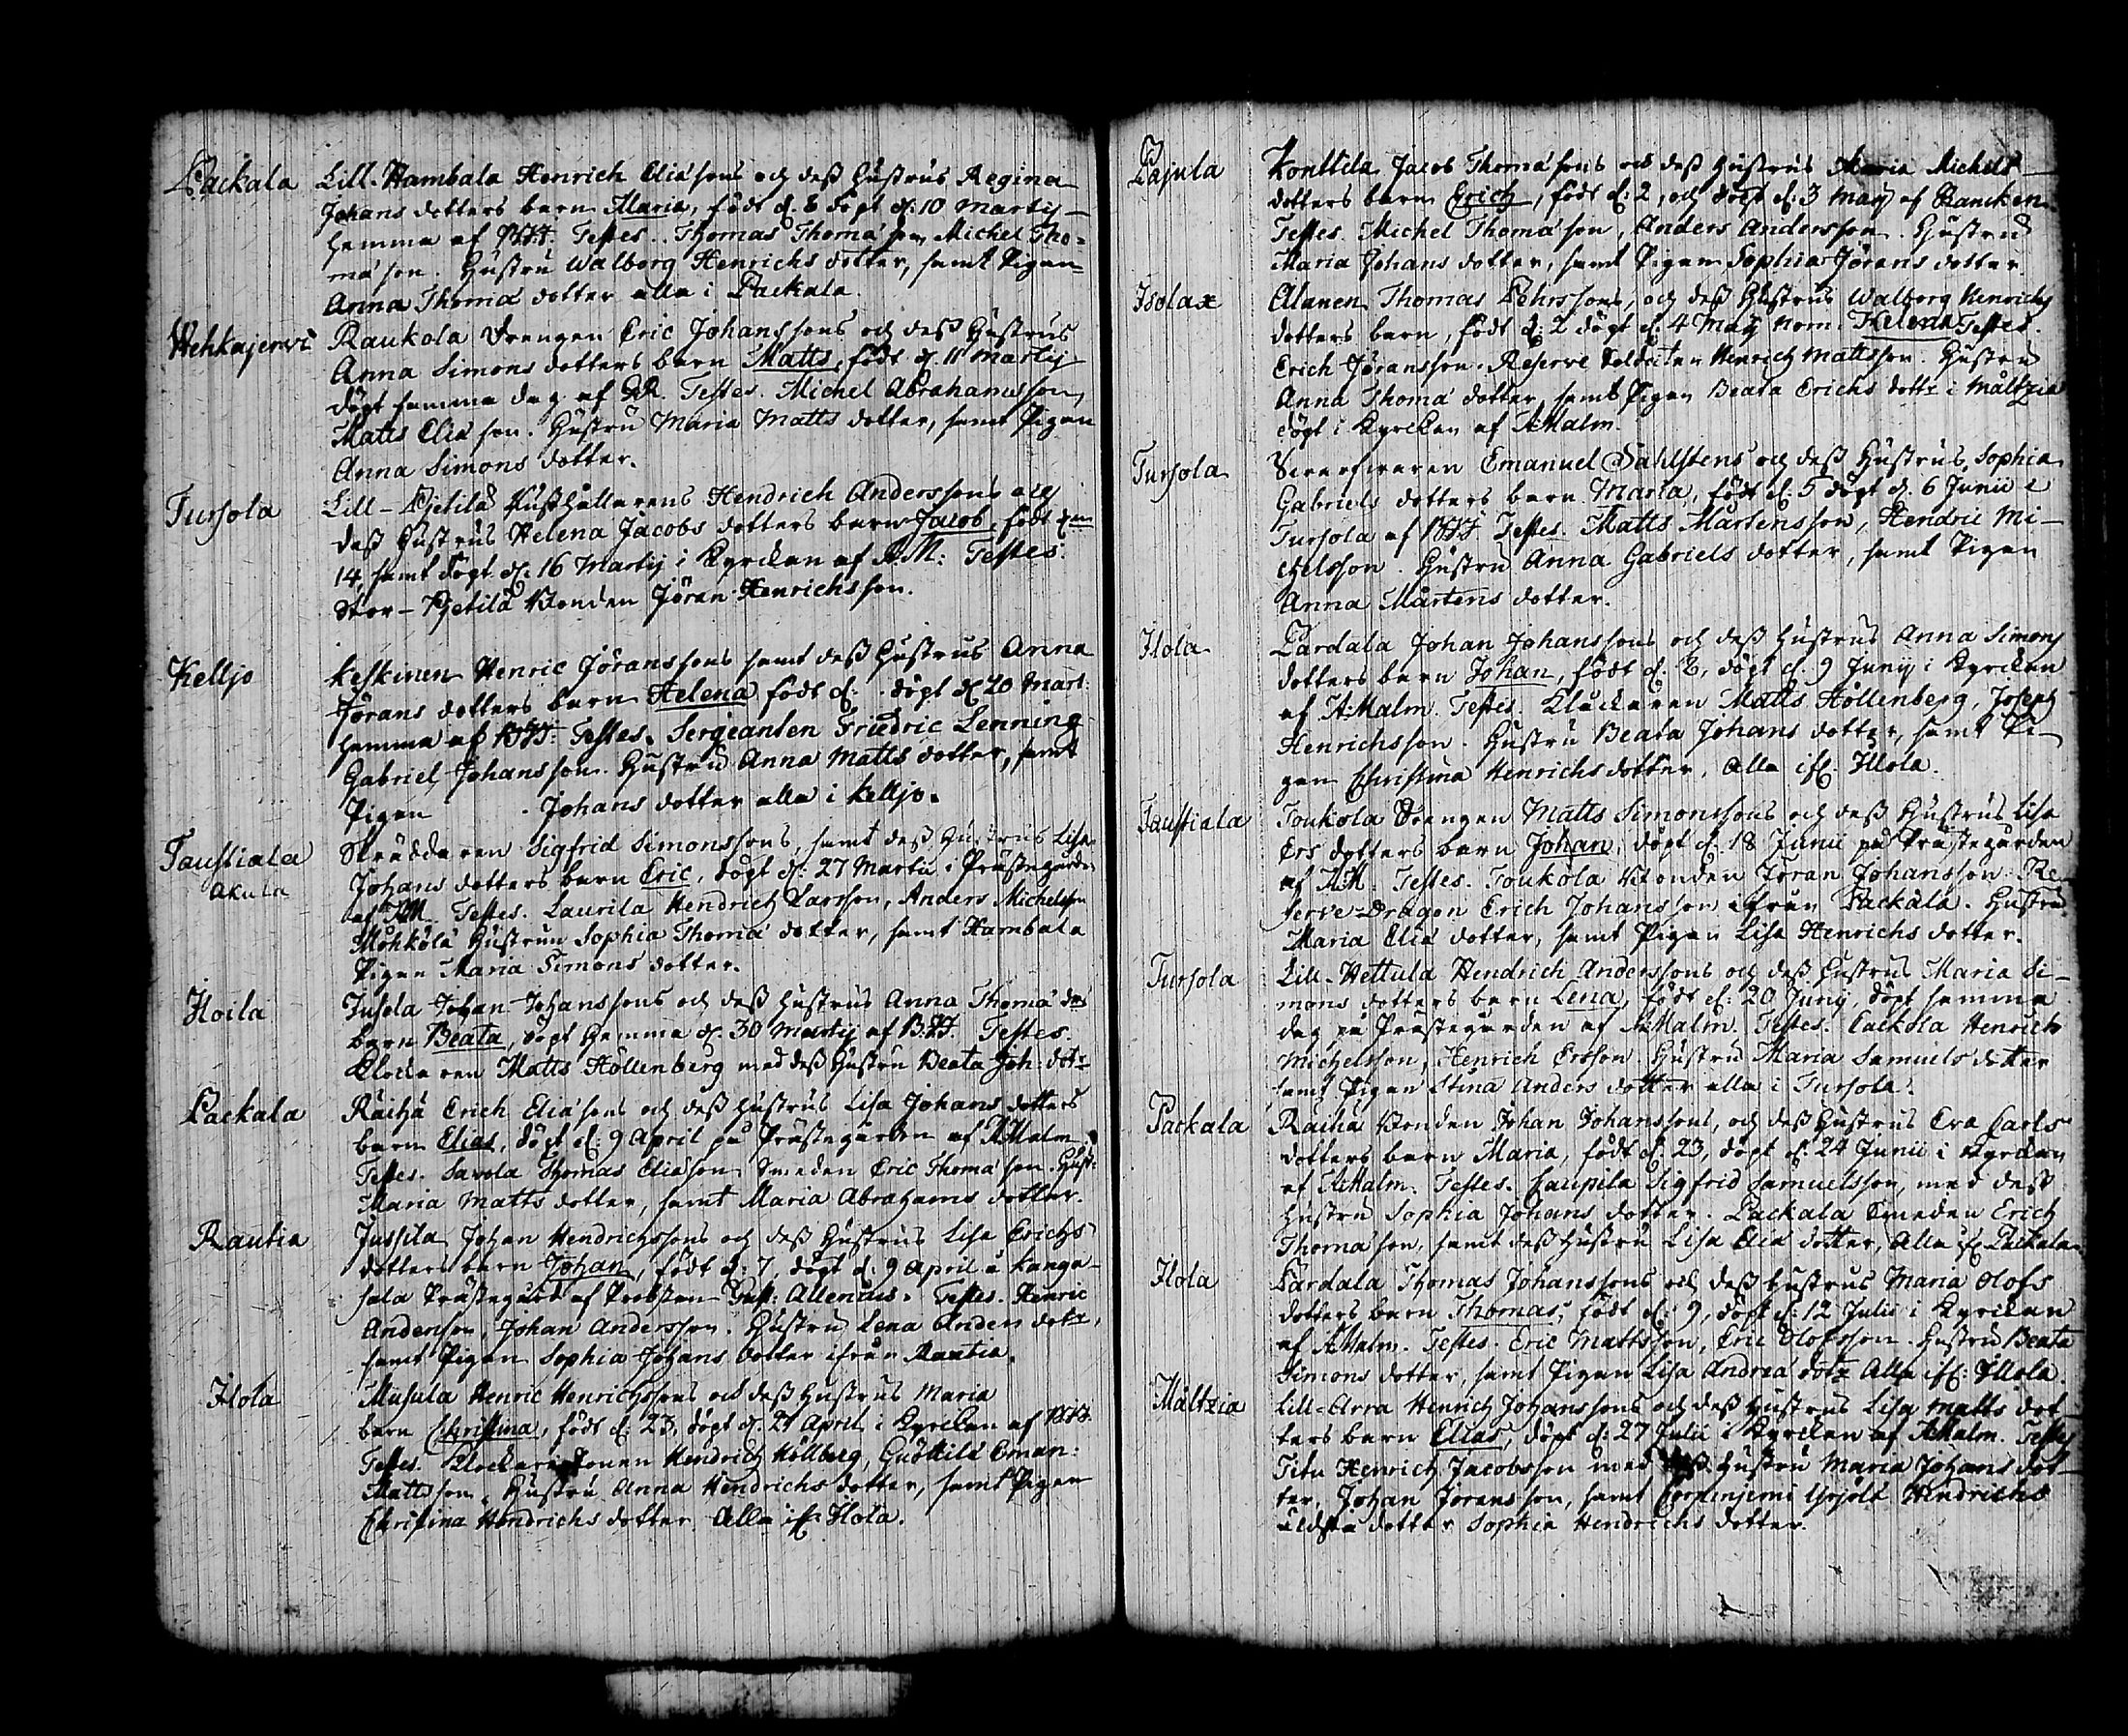 Packala Lill-Hambala Henrich Eliæsons och dess hustrus Regina
Johans dotters barn Maria, född d. 8 döpt d: 10 Martij
hemma af Testes. Thomas Thomæson, Michel Tho=
mæson. Hustru Walborg Henrichs dotter, samt Pigan
Anna Thomæ dotter alla i Packala
Wehkajervi Raukola Drengen Eric Johanssons och dess Hustrus
Anna Simons dotters barn Matts, född d. 11 Martij
döpt samma dag af Testes. Michel Abrahamsson,
Matts Eliæson. Hustru Maria Matts dotter, samt Pigan
Anna Simons dotter.
Tursola Lill-Pjetilä Rusthållarens Hendrich Anderssons och
dess Hustrus Helena Jacobs dotters barn Jacob, född
14, samt döpt d. 16 Martij i Kyrckan af A:M: Testes.
Stor-Pjetilä Bonden Jöran Henrichsson.
Kelljo Keskinen Henric Jöranssons samt dess Hustrus Anna
Jörans dotters barn Helena född d: döpt d 20 Mart:
hemma af Testes. Sergeanten Friedric Lenning
Gabriel Johansson. Hustru Anna Matts dotter, samt
Pigan Johans dotter alla i Kelljo.
Taustiala Skräddaren Sigfrid Simonssons, samt dess Hustrus Lisa
Akula Johans dotters barn Eric, döpt d: 27 Martii i Prästegården
af AM Testes. Laurila Hendrich Larsson, Anders Michelsson
Möhkölä Hustrun Sophia Thomæ dotter, samt Hambala
Pigan Maria Simons dotter.
Hoila Jusola Johan Johanssons och dess Hustrus Anna Thomæ drs
barn Beata, döpt hemma d. 30 Martij af Testes.
Klockaren Matts Höllenberg med dess Hustru Beata Joh: dotr
Packala Räihä Erich Eliæsons och dess Hustrus Lisa Johans dotters
barn Elias, döpt d: 9 April på Prästegården af AMalm.
Testes. Savola Thomas Eliæson Smeden Eric Thomæson. Hust:
Maria Matts dotter, samt Maria Abrahams dotter.
Rautia Jussila Johan Hendrichssons och dess Hustrus Lisa Erichs
dotters barn Johan, född d: 7, döpt d: 9 April å Kanga-
sala Prästegård af Probsten Gust: Allenius. Testes. Henric
Anderson, Johan Andersson. Hustru Lena Anders dotr,
samt Pigan Sophia Johans dotter ifrån Rautia.
Ilola Musula Henric Henrichssons och dess Hustrus Maria
barn Christina, född d: 23, döpt d. 27 April i Kyrckan af
Testes. Klockare Sonen Hendrich Höllberg, Guöttilä Eman:
Mattsson, Hustru Anna Hendrichs dotter, samt Pigan
Christina Hendrichs dotter Alla if: Ilola.
Pajula Konttila Jacob Thomæsons och dess Hustrus Maria Michels
dotters barn Erich, född d: 2, och döpt d: 3 Maij af Rancken.
Testes. Michel Thomæson, Anders Andersson. Hustru
Maria Johans dotter, samt Pigan Sophia Jörans dotter
Isolax Alanen Thomas Pehrssons, och dess Hustrus Walborg Henrichs
dotters barn, född d: 2 döpt d: 4 Maij nom. Helena Testes.
Erich Jöransson. Reserve Soldaten Henrich Mattsson. Hustru
Anna Thomæ dotter, samt Pigan Beata Erichs dottr i Måltzia
döpt i Kyrckan af AMalm.
Tursola Emanuel Dahlstens och dess Hustrus Sophia
Gabriels dotters barn Maria, född d: 5 döpt d. 6 Junii i
Tursola af Testes. Matts Mårtensson, Hendric Mi-
chelsson. Hustru Anna Gabriels dotter, samt Pigan
Anna Mårtens dotter.
Ilola Pardala Johan Johanssons och dess Hustrus Anna Simons
dotters barn Johan, född d. 8, döpt d. 9 Junij i Kyrckan
af A:Malm. Testes. Klockaren Matts Höllenberg, Joseph
Henrichsson. Hustru Beata Johans dotter, samt Pi-
gan Christina Henrichsdotter. Alla if: Ilola.
Taustiala Toukola Drengen Matts Simonssons och dess Hustrus Lisa
Ers dotters barn Johan, döpt d. 18 Junii på Prästegården
af AM. Testes. Toukola Bonden Jöran Johansson. Re-
serve-Dragon Erich Johansson ifrån Packala. Hustru
Maria Eliæ dotter, samt Pigan Lisa Henrichs dotter.
Tursola Lill-Hettula Hendrich Anderssons och dess Hustrus Maria Si-
mons dotters barn Lena, född d: 20 Junij, döpt samma
dag på Prästegården af AMalm. Testes. Cackola Henrich
Michelsson, Henrich Ersson. Hustru Maria Samuels dotter
samt Pigan Stina Anders dotter alla i Tursola.
Packala Räihä Bonden Johan Johanssons, och dess Hustrus Eva Carls
dotters barn Maria, född d. 23, döpt d: 24 Junii i Kyrckan
af AMalm. Testes. Caupila Sigfrid Samuelsson, med dess
Hustru Sophia Johans dotter. Packala Smeden Erich
Thomæson, samt dess Hustru Lisa Eliæ dotter, Alla if Packala
Ilola Pardala Thomas Johanssons och dess Hustrus Maria Olofs
dotters barn Thomas, född d: 9, döpt d: 12 Julii i Kyrckan
af AMalm. Testes. Eric Mattsson, Eric Olofsson. Hustru Beata
Simons dotter, samt Pigan Lisa Andreæ dotr Alla if: Ilola.
Måltzia Lill-Arra Henrich Johanssons och dess Hustrus Lisa Matts dot
ters barn Elias, döpt d: 27 Julii i Kyrckan af AMalm. Testes
Titu Henrich Jacobsson med dess Hustru Maria Johans dot-
ter, Johan Jöransson, samt Hendrichs
äldsta dotter Sophia Hendrichs dotter.